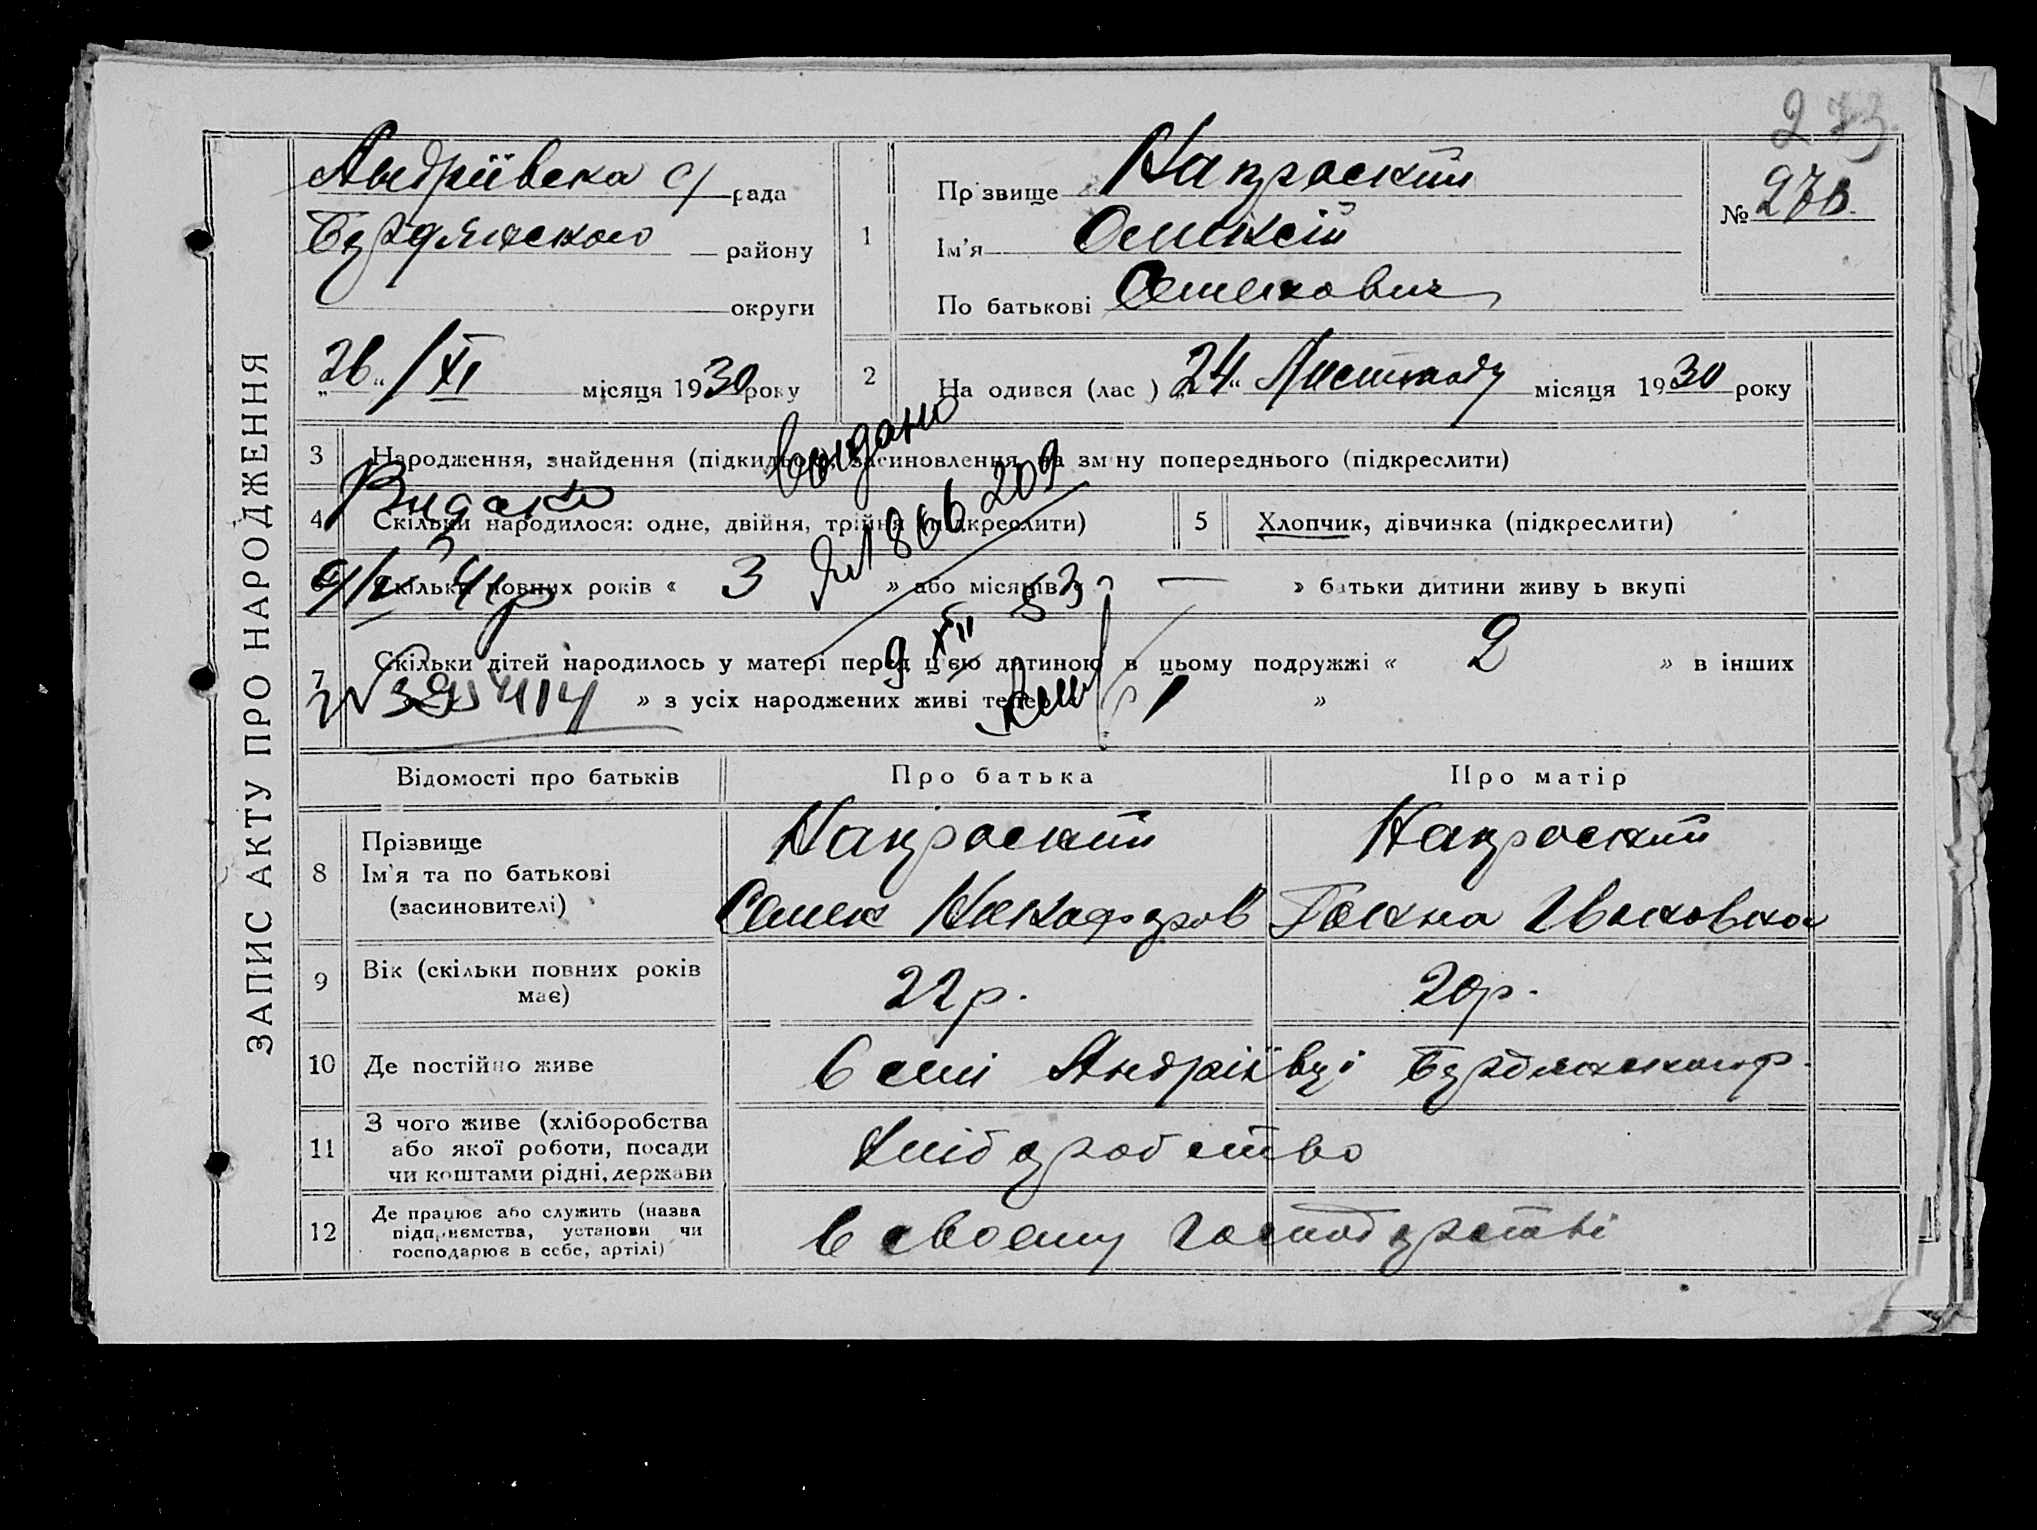 273
ЗАПИС АКТУ ПРО НАРОДЖЕННЯ
Андріївська с/рада
Бердянського району
округи
„26“ / XI місяця 1930 року
1
Прізвище
Ім'я Олексій
По батькові Семенович
№ 270.
2 На одився (лас ) „24“ Листопаду місяця 1930 року
3 Народження, знайдення (підкидьок), засиновлення, на зм ну попереднього (підкреслити)
Видано
4 Скільки народилося: одне, двійня, трійня (підкреслити)
5 Хлопчик, дівчинка (підкреслити)
Видано
6 Скільки повних років « 3 » або місяців « — » батьки дитини живу ь вкупі
866209
9 XII 53
7 Скільки дітей народилось у матері перед цією дитиною в цьому подружжі « 2 » в інших
» з усіх народжених живі тепер « 1 »
Відомості про батьків
Про батька
Про матір
8 Прізвище
Ім'я та по батькові
(засиновителі)
Семен
Ганна Івановна
9 Вік (скільки повних років має)
22 р.
20 р.
10 Де постійно живе
в селі Андріївці Бердянського р.
11 З чого живе (хліборобства
або якої роботи, посади
чи коштами рідні, держави
Хліборобство
12 Де працює або служить (назва
підприємства, установи чи
господарює в себе, артілі)
в своему господарстві